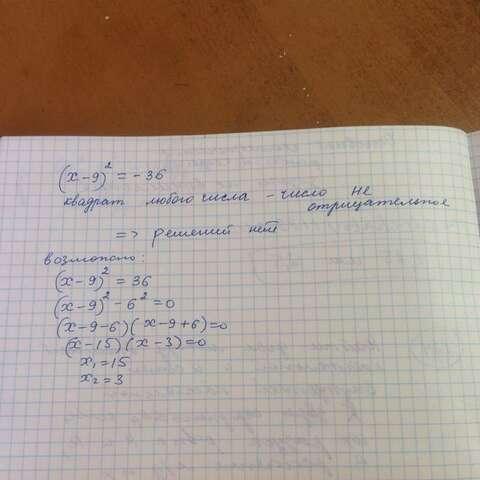 (x-9)² = -36
квадрат любого числа - число не
отрицательное
=> решений нет
возможно:
(x-9)² = 36
(x-9)² - 6² = 0
(x-9-6)(x-9+6)=0
(x-15)(x-3)=0
x₁=15
x₂=3